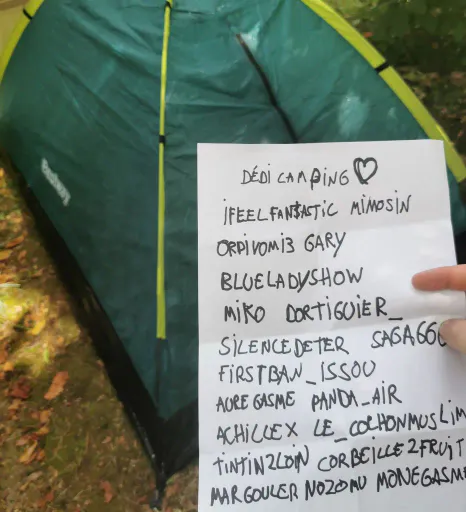 DÉDI CAMPING
IFEELFANTASTIC MIMOSIN
ORPIVOMI3 GARY
BLUELADYSHOW
MIKO DORTIGUIER_
SILENCEDETER
FIRSTBAN_ISSOU
AUREGASME PANDA_AIR
ACHILLEX LE_COCHONMUSLIM
TINTIN2LOIN CORBEILLE2FRUIT
MARGOULER NOZOMU MONEGASME